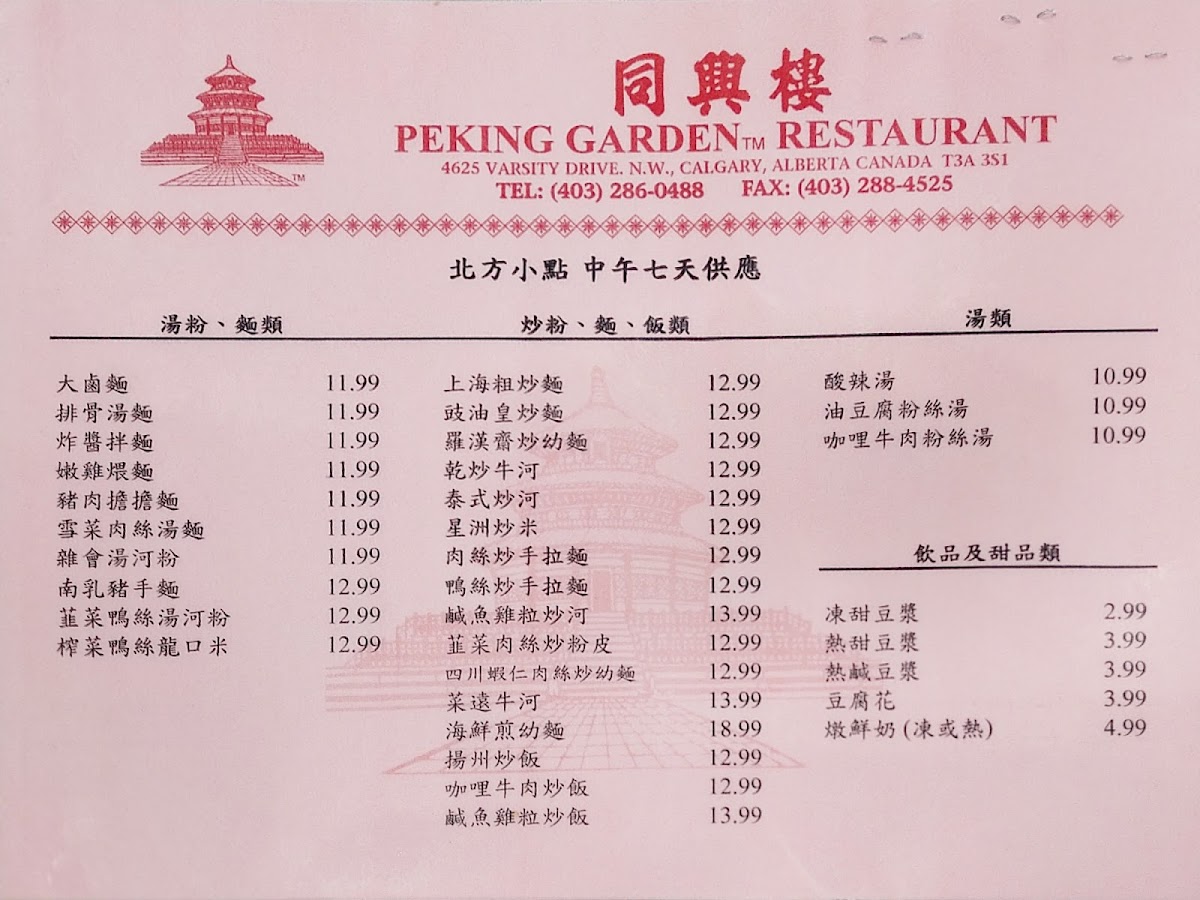 同興樓
PEKING GARDEN™ RESTAURANT
4625 VARSITY DRIVE. N.W., CALGARY, ALBERTA CANADA T3A 3S1
TEL: (403) 286-0488 FAX: (403) 288-4525
TM
北方小點 中午七天供應
湯粉、麵類
大鹵麵 11.99
排骨湯麵 11.99
炸醬拌麵 11.99
嫩雞煨麵 11.99
豬肉擔擔麵 11.99
雪菜肉絲湯麵 11.99
雜會湯河粉 11.99
南乳豬手麵 12.99
韮菜鴨絲湯河粉 12.99
榨菜鴨絲龍口米 12.99
炒粉、麵、飯類
上海粗炒麵 12.99
豉油皇炒麵 12.99
羅漢齋炒幼麵 12.99
乾炒牛河 12.99
泰式炒河 12.99
星洲炒米 12.99
肉絲炒手拉麵 12.99
鴨絲炒手拉麵 12.99
鹹魚雞粒炒河 13.99
韮菜肉絲炒粉皮 12.99
四川蝦仁肉絲炒幼麵 12.99
菜遠牛河 13.99
海鮮煎幼麵 18.99
揚州炒飯 12.99
咖哩牛肉炒飯 12.99
鹹魚雞粒炒飯 13.99
湯類
酸辣湯 10.99
油豆腐粉絲湯 10.99
咖哩牛肉粉絲湯 10.99
飲品及甜品類
凍甜豆漿 2.99
熱甜豆漿 3.99
熱鹹豆漿 3.99
豆腐花 3.99
燉鮮奶 (凍或熱) 4.99